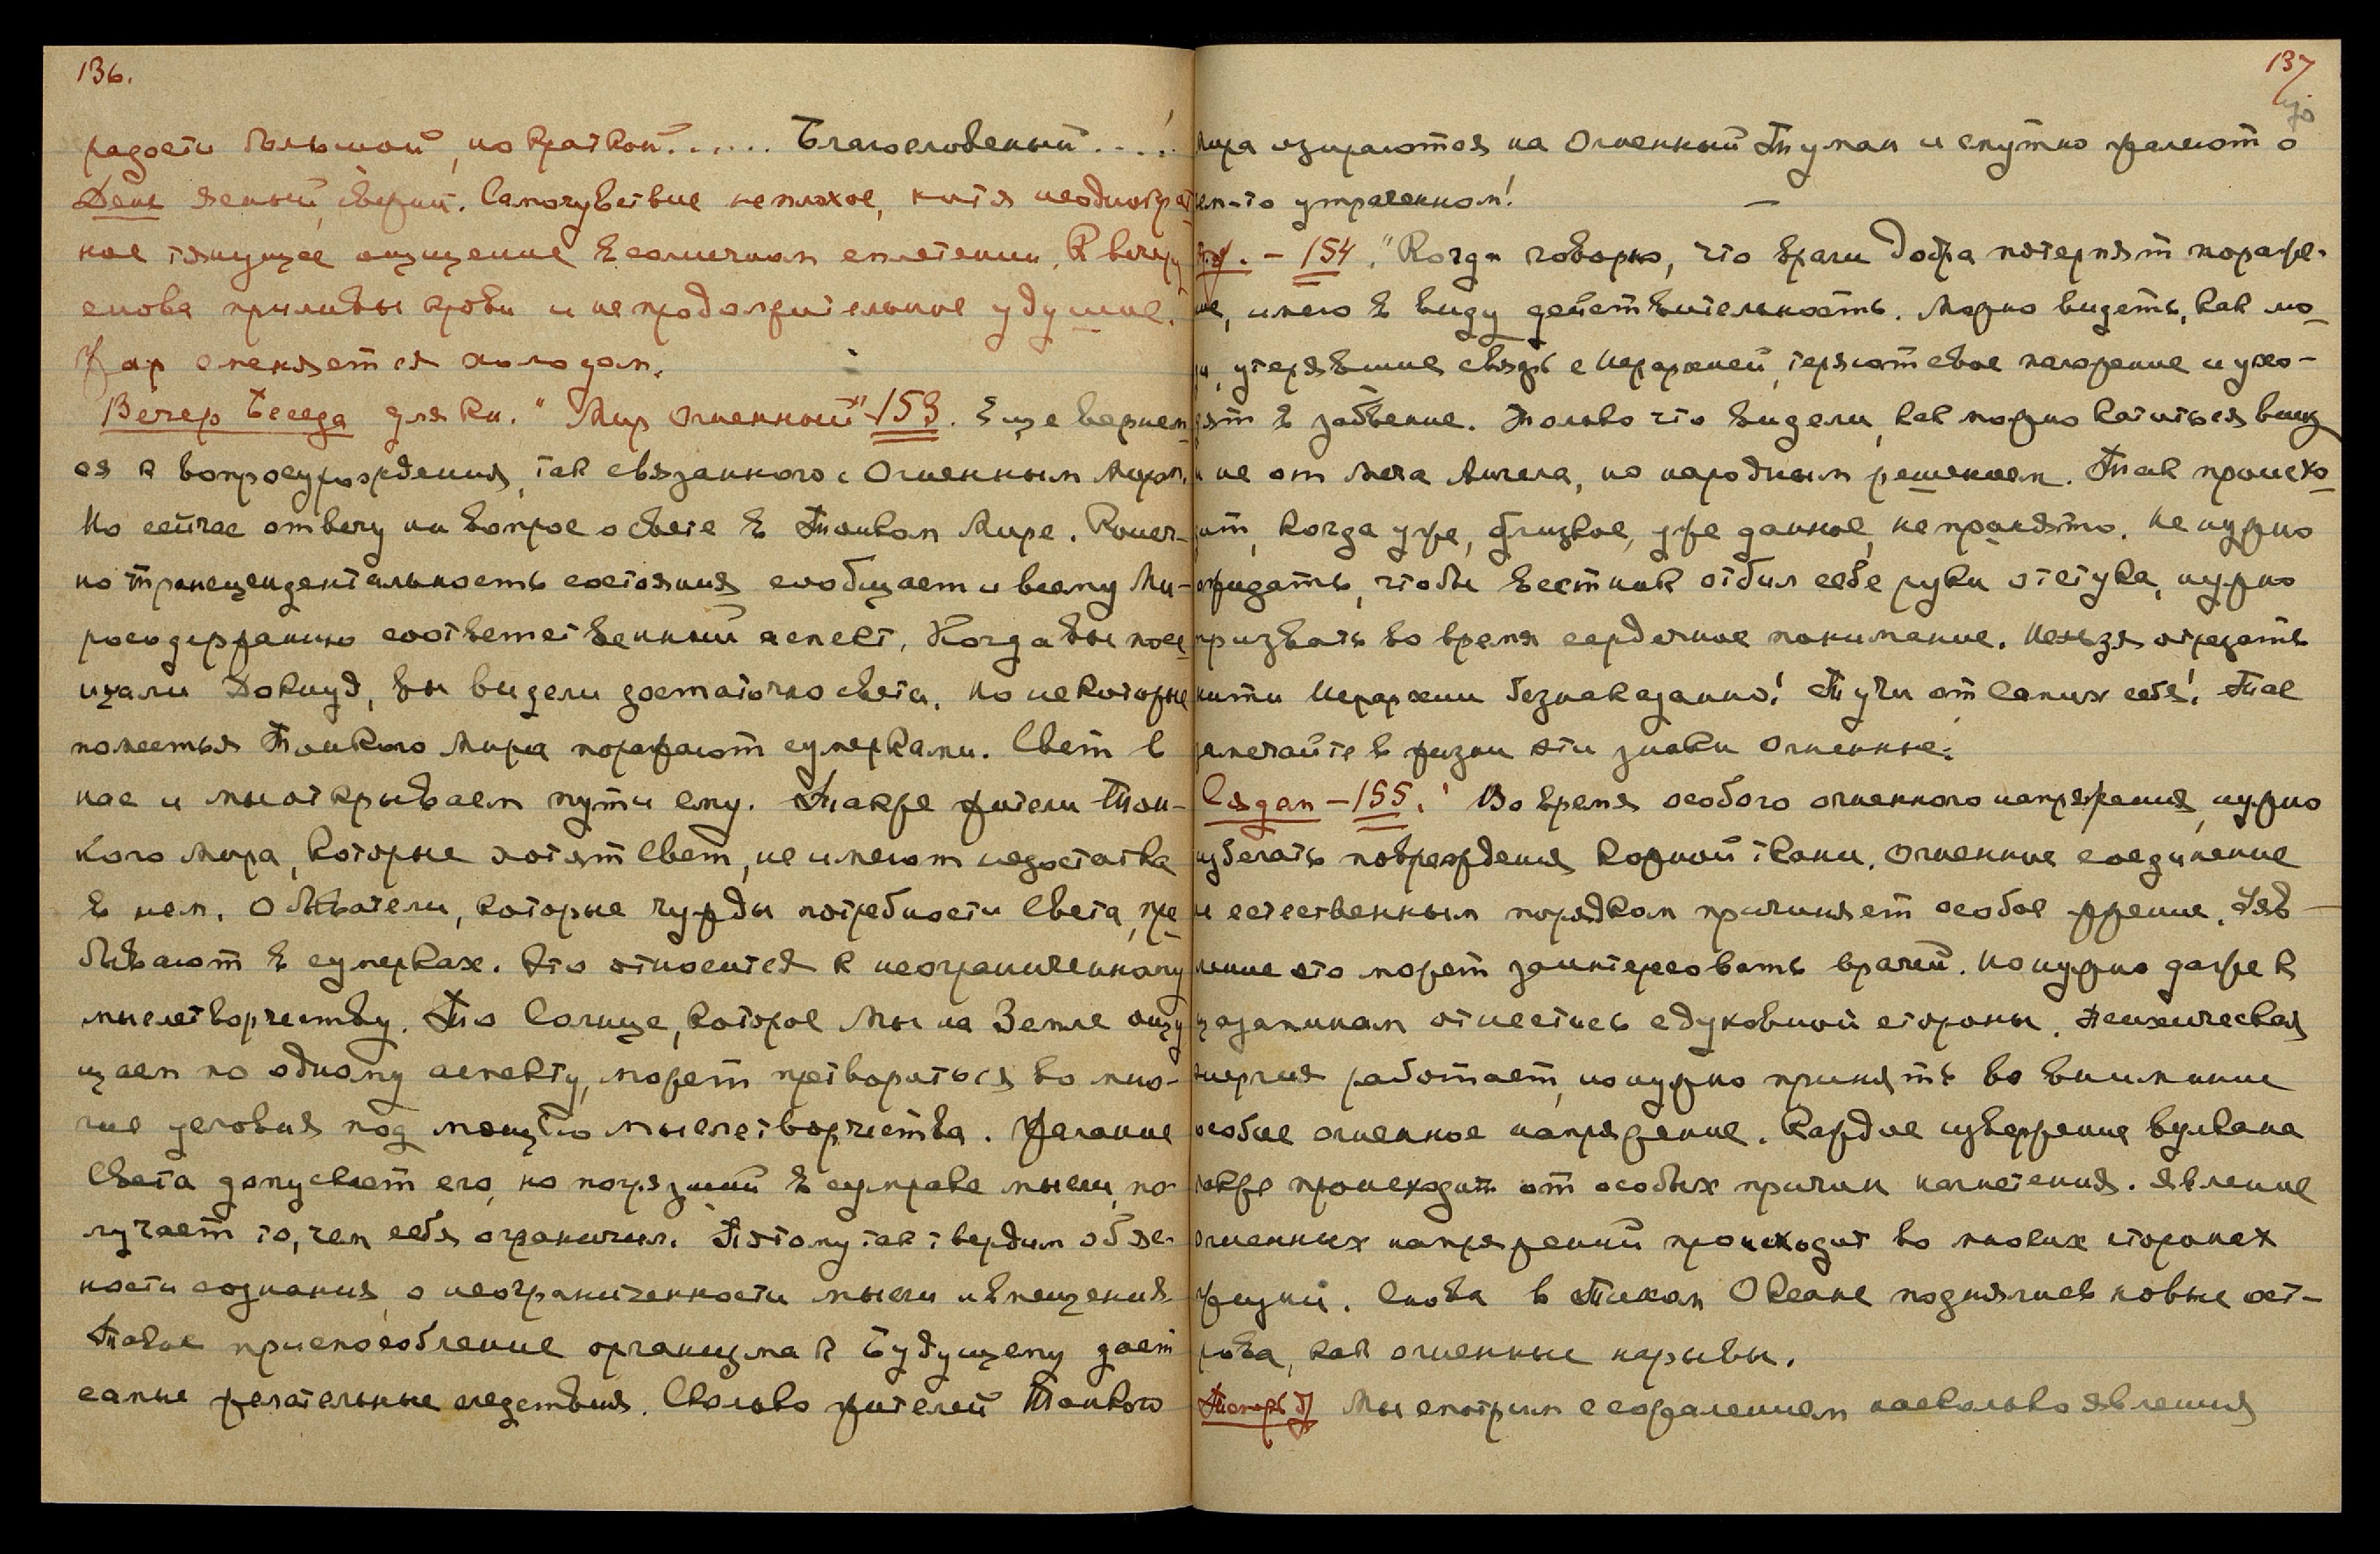 136.
радости большой, но краткой...... Благословенный....!
День ясный, свежий. Самочувствие неплохое, хотя неоднократ
ное тянущее ощущение в солнечном сплетении. К вечеру
снова приливы крови и непродолжительное удушие.
Жар сменяется холодом.
Вечер Беседа для кн. "Мир Огненный" 153. Еще вернем
ся к вопросу рождения, так связанного с Огненным Миром.
Но сейчас отвечу на вопрос о свете в Тонком Мире. Конеч-
но трансцендентальность состояния сообщает и всему Ми-
росодержанию соответственный аспект. Когда вы посе
щали Докиуд, вы видели достаточно света, но некоторые
поместья Тонкого Мира поражают сумерками. Свет в
нас и мы открываем пути ему. Также жители Тон-
кого Мира, которые хотят Свет, не имеют недостатка
в нем. Обыватели, которые чужды потребности Света, пре
бывают в сумерках. Это относится к неограниченному
мыслетворчеству. То Солнце, которое Мы на Земле ощу
щаем по одному аспекту, может претвориться во мно-
гие условия под мощью мыслетворчества. Желание
Света допускает его, но погрязший в сумраке мысли, по-
лучает то, чем себя ограничил. Поэтому так твердим об яс-
ности сознания, о неограниченности мысли и вмещения
Такое приспособление организма к Будущему дает
самые желательные следствия. Сколько жителей Тонкого
137
Мира озираются на Огненный Туман и смутно жалеют о
чем-то утраченном!
154. "Когда говорю, что враги добра потерпят пораже-
ние, имею в виду действительность. Можно видеть, как лю-
ди, утерявшие связь с Иерархией, теряют свое положение и ухо-
дят в забвение. Только что видели, как можно катиться вниз
и не от Меча Ангела, но народным решением. Так происхо-
дит, когда уже, близкое, уже данное, не принято. Не нужно
ожидать, чтобы вестник отбил себе руки от стука, нужно
призвать во время сердечное понимание. Нельзя отрезать
нити Иерархии безнаказанно! Тучи от самих себя! Так
замечайте в жизни эти знаки Огненные.
Садам - 155. Во время особого огненного напряжения, нужно
избегать повреждения кожной ткани. Огненные соединение
и естественным порядком причиняет особое жжение. Явл-
ление это может заинтересовать врачей. Но нужно даже к
царапинам отнестись с духовной стороны. Психическая
энергия работает, но нужно принять во внимание
особое огненное напряжение. Каждое извержение вулкана
также происходит от особых причин нагнетения. Явление
огненных напряжений происходит во многих сторонах
жизни. Снова в Тихом Океане поднялись новые ост-
рова, как огненные нарывы.
Мы смотрим с сожалением насколько явления